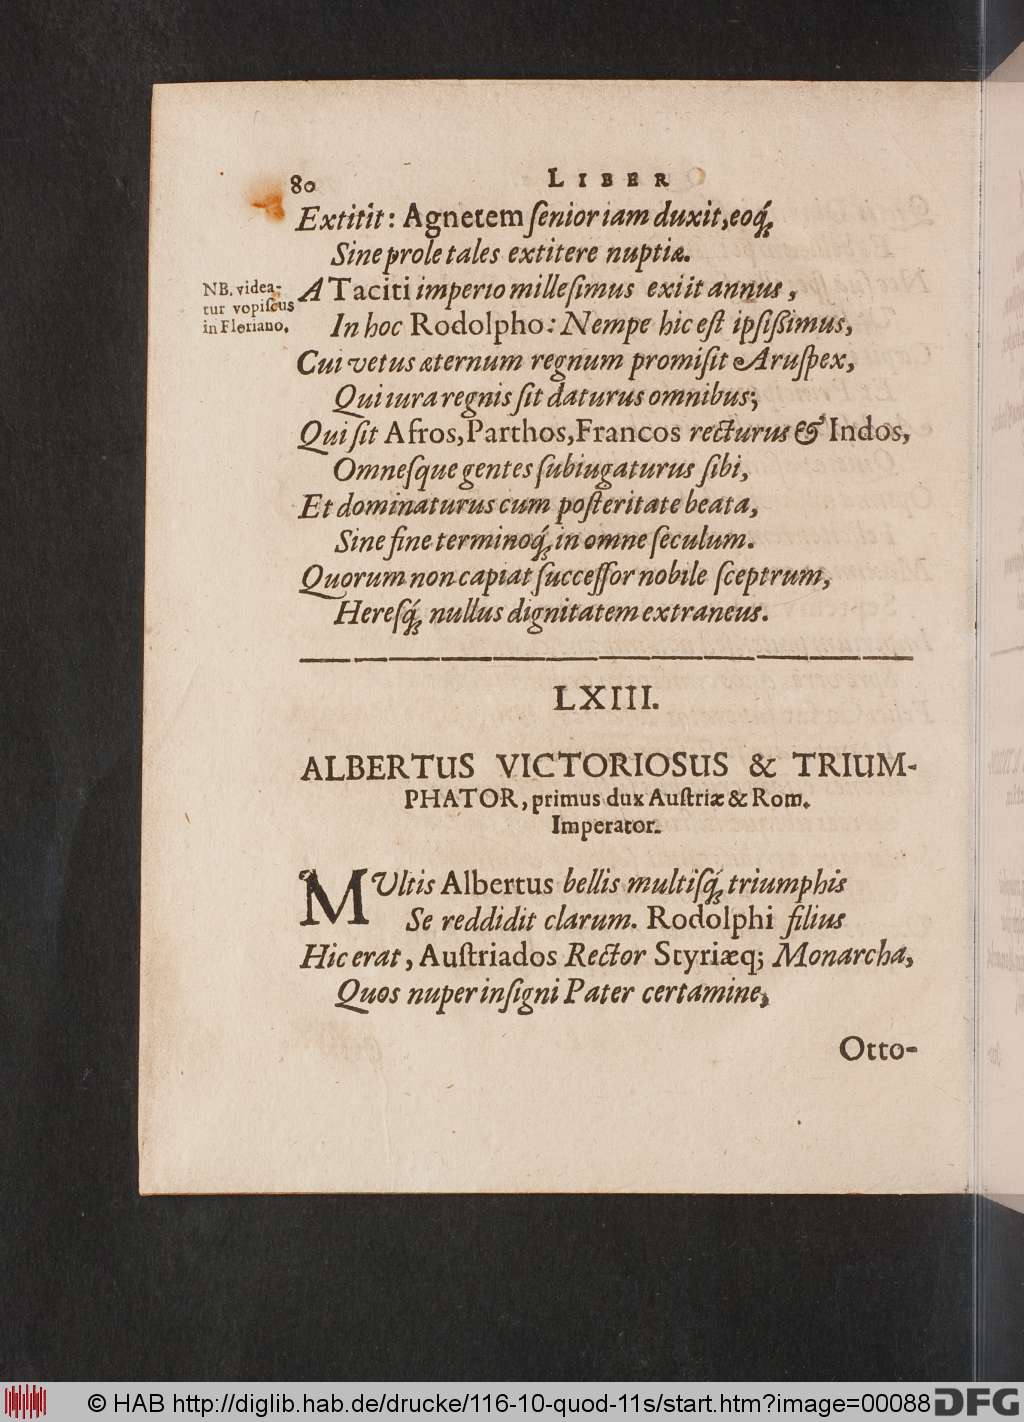 80 LIBER
Extitit: Agnetem ſenior iam duxit, eoq́;
Sine prole tales extitere nuptiæ.
NB. videa-
tur vopiſcus
in Floriano.
A Taciti imperio milleſimus exiit annus,
In hoc Rodolpho: Nempe hic eſt ipſißimus,
Cui vetus æternum regnum promiſit Aruſpex,
Qui iura regnis ſit daturus omnibus;
Qui ſit Afros, Parthos, Francos recturus & Indos,
Omneſque gentes ſubiugaturus ſibi,
Et dominaturus cum poſteritate beata,
Sine fine terminoq́; in omne ſeculum.
Quorum non capiat ſucceſſor nobile ſceptrum,
Hereſq́; nullus dignitatem extraneus.
LXIII.
ALBERTUS VICTORIOSUS & TRIUM-
PHATOR, primus dux Auſtriæ & Rom.
Imperator.
MUltis Albertus bellis multiſq́; triumphis
Se reddidit clarum. Rodolphi filius
Hic erat, Auſtriados Rector Styriæq; Monarcha,
Quos nuper inſigni Pater certamine,
Otto-
© HAB http://diglib.hab.de/drucke/116-10-quod-11s/start.htm?image=00088 DFG